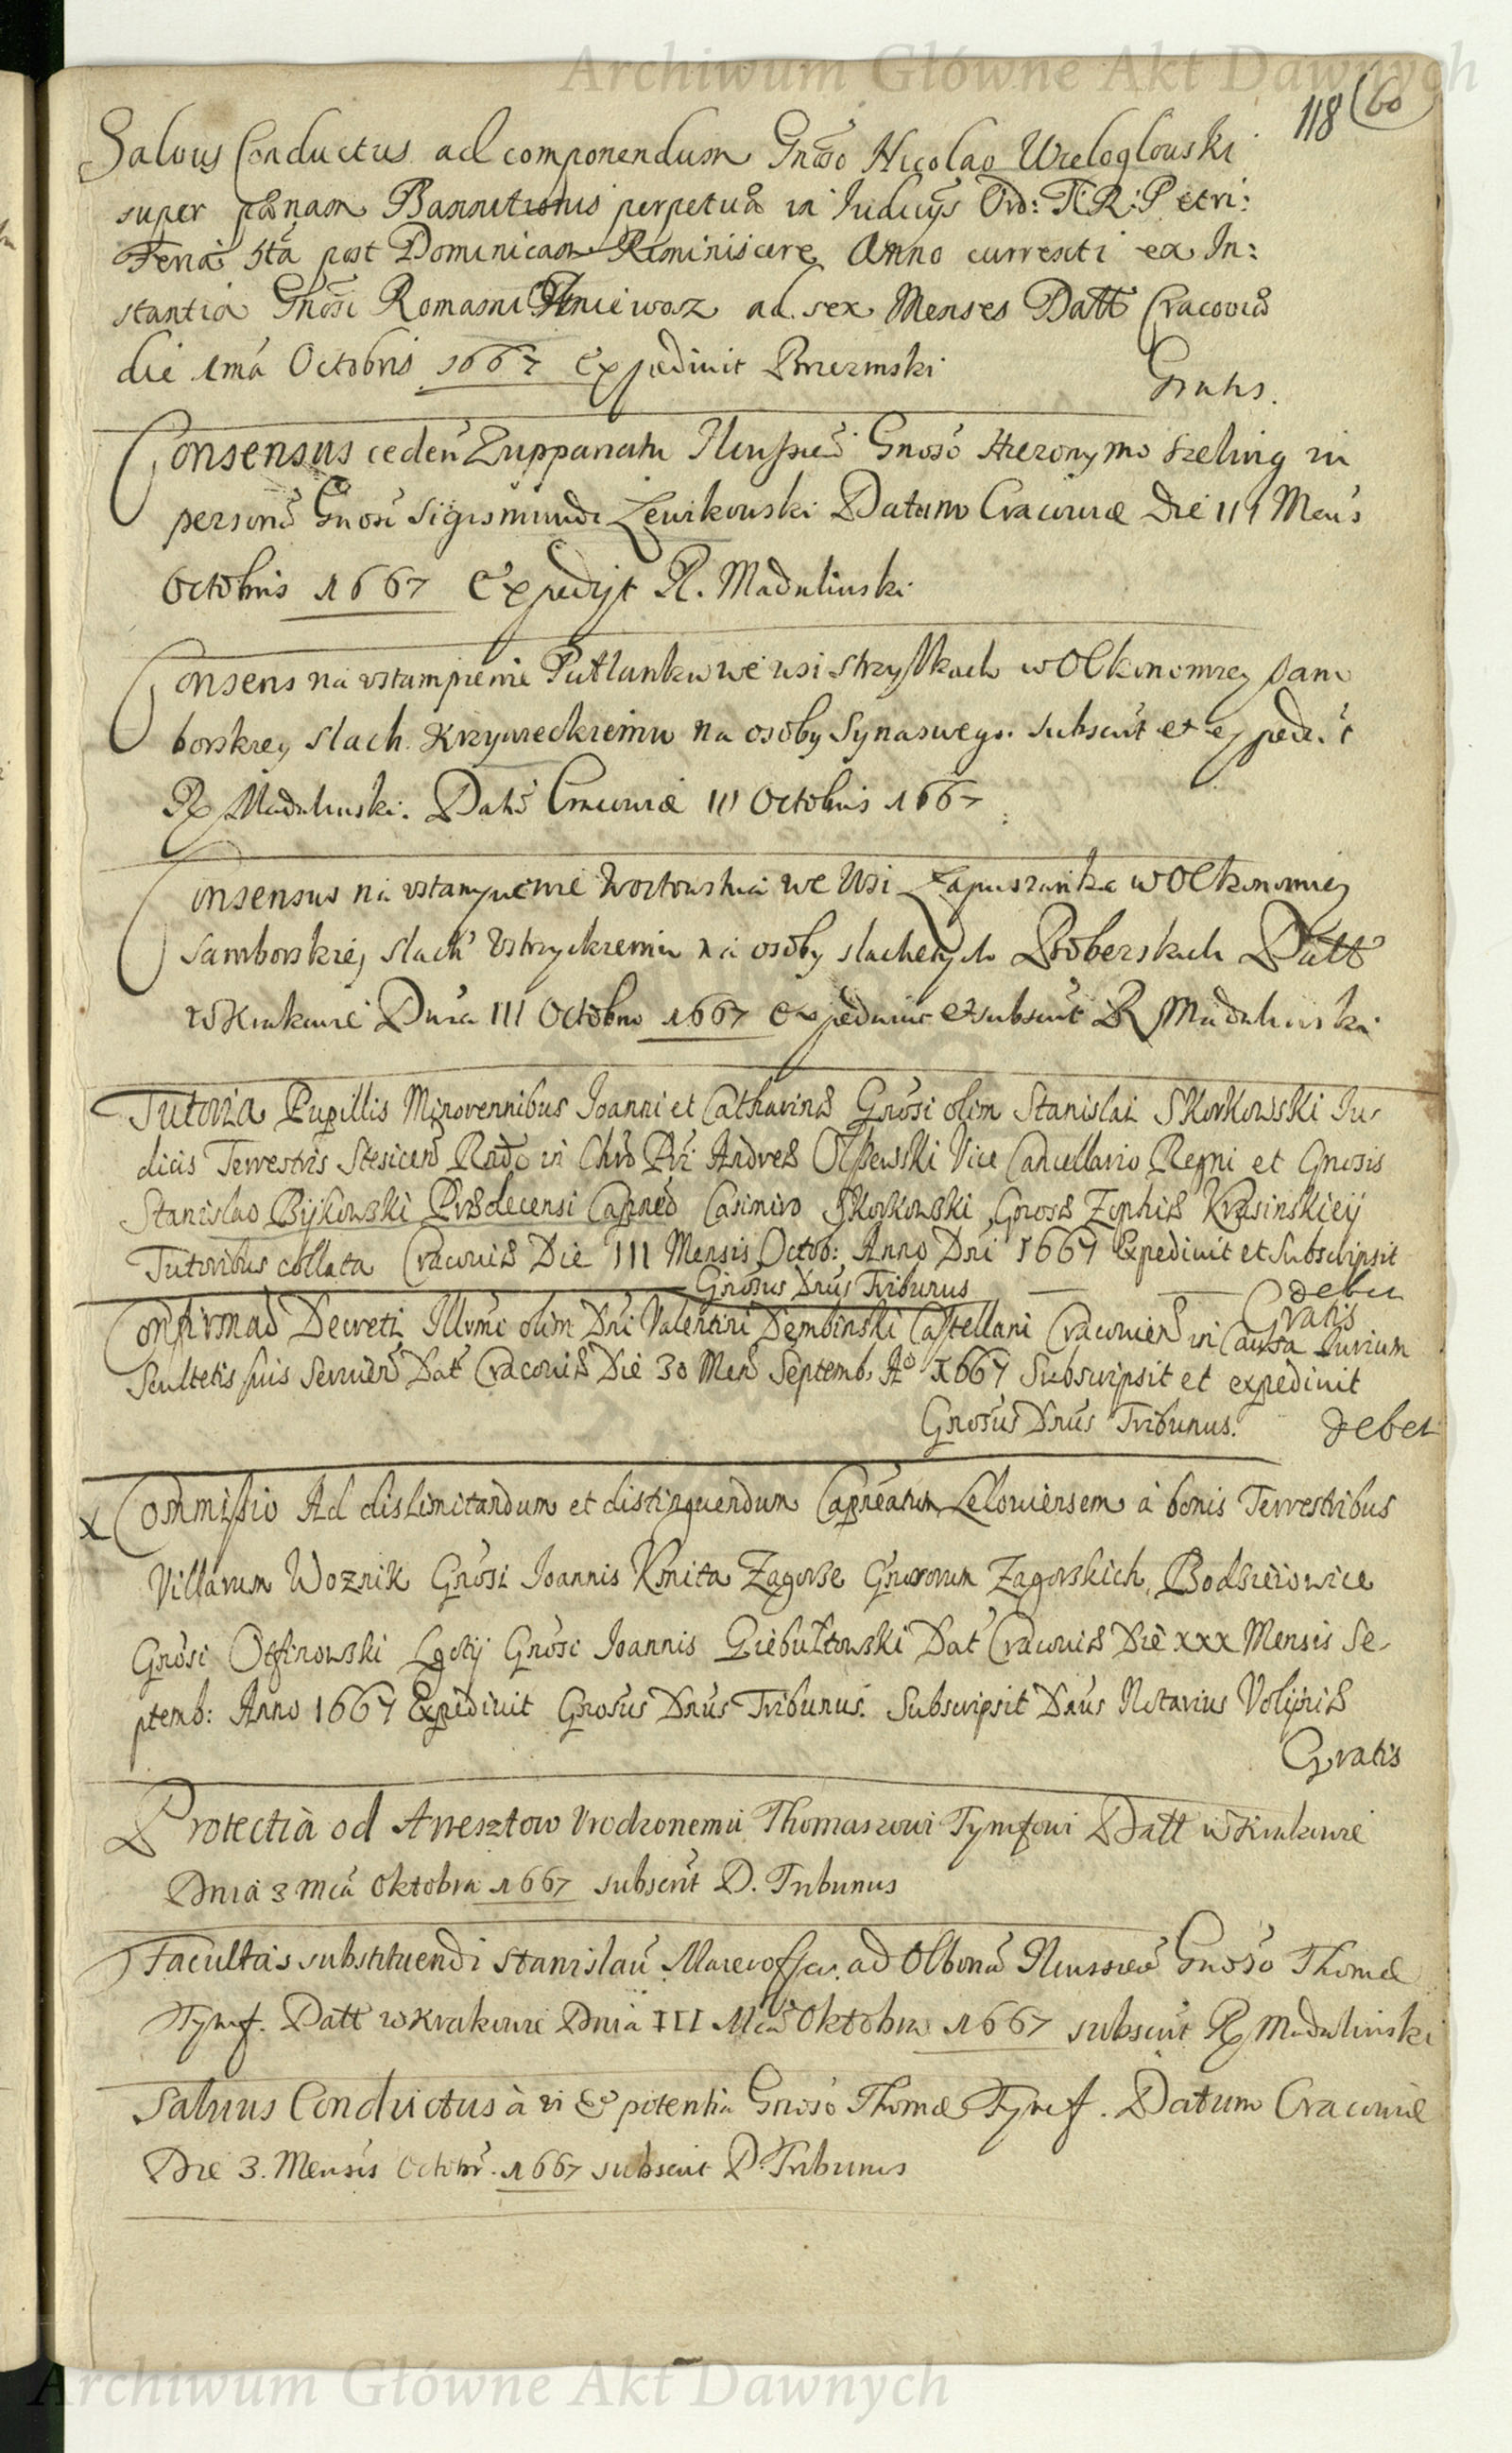 Archiwum Główne Akt Dawnych
118 (60
Salvus Conductus ad componendum Gnoso Nicolao Wieloglowski
super pænam Bannitionis perpetuæ in Iudicijs Ord: T: R: Petri:
Feria 5ta post Dominicam Reminiscere Anno currenti ex In:
stantia Gnosi Romani Gniewosz ad sex Menses Datt Cracoviæ
die 1ma Octobris 1667 Expedivit Brzezinski
Gratis.
Consensus ceden Zuppanatu Gnoso Hieronymo Szeling in
personā Gnosi Sigismundi Lewikowski Datum Cracoviæ Die 111 Mens
Octobris 1667 Expedijt R. Madalinski
Consens na vstampienie Putlanku we wsi Strzyłkach w OEkonomiey Sam
borskiey Slach. Krzywieckiemu na osoby Syna swego. subscrit et expedi:t
R Madalinski. Dat Cracoviæ 111 Octobris 1667
Consensus na vstampienie Woitowstwa we Wsi Łapuszanka w OEkonomiey
Samborskiey slach Vstrzyckiemu na osoby slachetnych Proberskich Datt
w Krakowie Dnia 111 Octobra 1667 expedivit et subscrit R Madalinski
Tutoria Pupillis Minorennibus Joanni et Catharinæ Gnosi olim Stanislai Skorkowski Iu-
dicis Terrestris Rndo in Chro Pri Andreæ Olszewski Vice Cancellario Regni et Gnosis
Stanislao Bijkowski Prædecensi Capneo Casimiro Skorkowski, Gnosæ Zophiæ Krasinskieij
Tutoribus collata Cracoviæ Die 111 Mensis Octob: Anno Dni 1667 Expedivit et Subscripsit
Gnosus Dnus Tribunus debet
Gratis
Confirmao Decreti Illvmi olim Dni Valentini Dembinski Castellani Cracovien in Causa Iurium
Scultetis suis Servien Dat Cracoviæ Die 30 Men Septemb. Ao 1667 Subscripsit et expedivit
Gnosus Dnus Tribunus. debet
x Commissio Ad dislimitandum et distinguendum Capneatum Leloviensem à bonis Terrestribus
Villarum Woznik Gnosi Joannis Kmita Zagorze Gnosorum Zagorskich, Bodzieiowice
Gnosi Otfinowski Lgoty Gnosi Joannis Giebułtowski Dat Cracoviæ Die xxx Mensis Se-
ptemb: Anno 1667 Expedivit Gnosus Dnus Tribunus. Subscripsit Dnus Notarius Volijniæ
Gratis
Protectia od Aresztow Vrodzonemu Thomaszowi Tymfowi Datt w Krakowie
Dnia 3 Mca Oktobra 1667 subscrit D. Tribunus
Facultas substituendi Stanislau ad Gnoso Thomæ
Tymf. Datt w Krakowie Dnia III Mca Oktobra 1667 subscrit R Madalinski
Salvus Conductus à vi & potentia Gnoso Thomæ Tymf. Datum Cracoviæ
Die 3. Mensis Octobr. 1667 subscrit D. Tribunus
Archiwum Główne Akt Dawnych